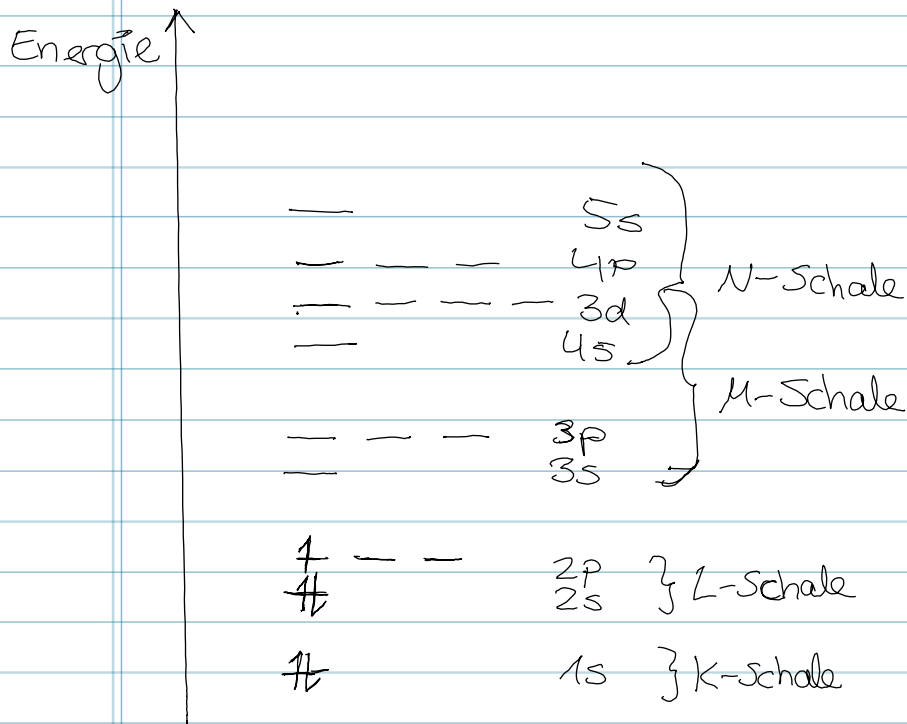 Energie
5s
4p
N-Schale
3d
4s
M-Schale
3p
3s
2p
2s
} L-Schale
1s
} K-Schale